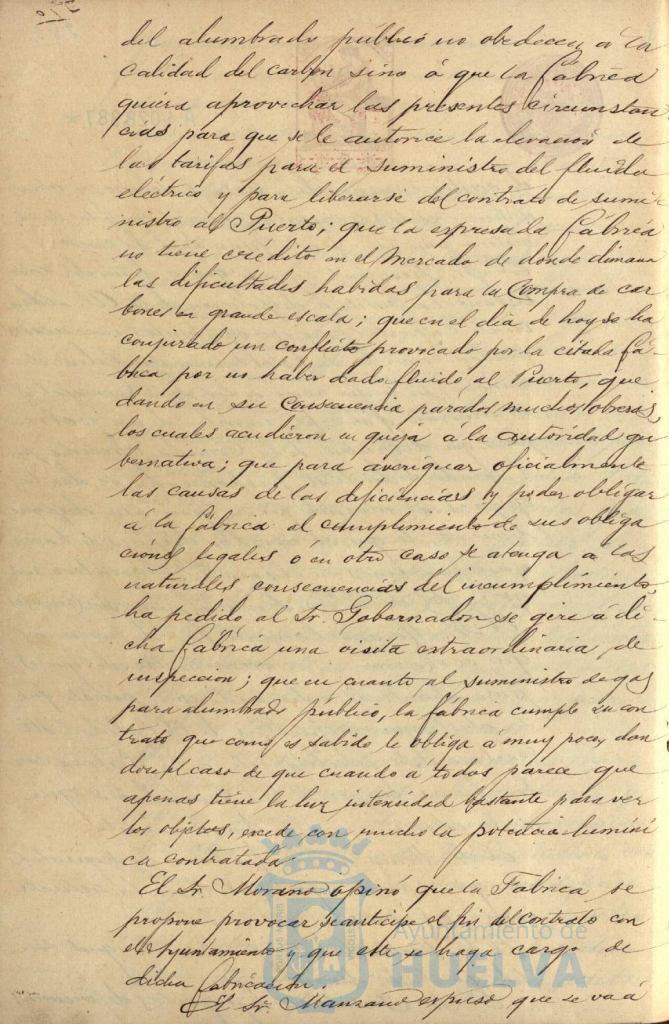 del alumbrado público no obedecen a la
calidad del carbon sino á que la fábrica
quiera aprovechar las presentes circunstan
cias para que se le autorice la elevacion de
las tarifas para el suministro del fluido
eléctrico y para liberarse del contrato de sumi
nistro al Puerto; que la expresada fábrica
no tiene crédito en el mercado de donde dimana
las dificultades habidas para la compra de car
bones en grande escala; que en el dia de hoy se ha
conjurado un conflicto provocado por la citada fá-
brica por no haber dado fluido al Puerto, que
dando en su consecuencia parados muchos obreros,
los cuales acudieron en queja á la autoridad gu
bernativa; que para averiguar oficialmente
las causas de las deficiencias y poder obligar
á la fábrica al cumplimiento de sus obliga
ciones legales ó en otro caso se atenga a las
naturales consecuencias del incumplimiento,
ha pedido al Sr. Gobernador se gire á di-
cha fábrica una visita extraordinaria de
inspeccion; que en cuanto al suministro de gas
para alumbrado público, la fábrica cumple su con
trato que como es sabido le obliga á muy poco, dan
dose el caso de que cuando á todos parece que
apenas tiene la luz intensidad bastante para ver
los objetos, excede con mucho la potencia lumini
ca contratada.
El Sr. Morano opinó que la Fabrica se
propone provocar se anticipe el fin del contrato con
el Ayuntamiento y que este se haga cargo de
dicha fabricacion.
El Sr. Manzano expuso que se vá á
Ayuntamiento de
HUELVA